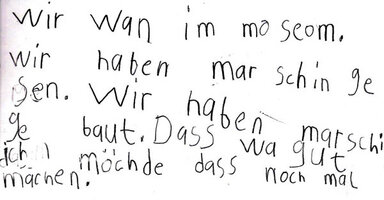 wir wan im mo seom.
wir haben mar schin ge
sen. Wir haben marschi
ge baut. Dass wa gut
ich möchde dass noch mal
machen.